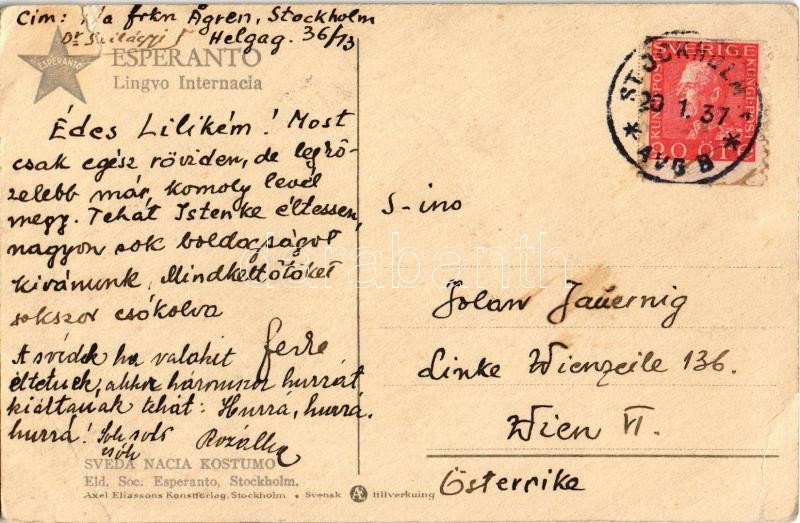 Cim: c/a frkn Ågren, Stockholm
Dr Szilágyi
Helgag. 36/73
ESPERANTO
ESPERANTO
Lingvo Internacia
Édes Lilikém! Most
csak egész röviden, de legkö-
zelebb már, komoly levél
megy. Tehát Istenke éltessen,
nagyon sok boldogságot
kivánunk, Mindkettőtöket
sokszor csókolva
Ferke
A svédek ha valakit
éltetnek, akkor háromszor hurrát
kiáltanak tehát: Hurrá, hurrá,
hurrá! Sok sok
csók Rozálka
SVEDA NACIA KOSTUMO
Eld. Soc. Esperanto, Stockholm.
Axel Eliassons Konstförlag. Stockholm • Svensk Æ tillverkning
SVERIGE
KUNGL·POST
KUNGL·POST
20 ÖRE
STOCKHOLM
20 1. 37
* AVG B *
S-ino
Jolan Jauernig
Linke Wienzeile 136.
Wien VI.
Österrike
darabanth